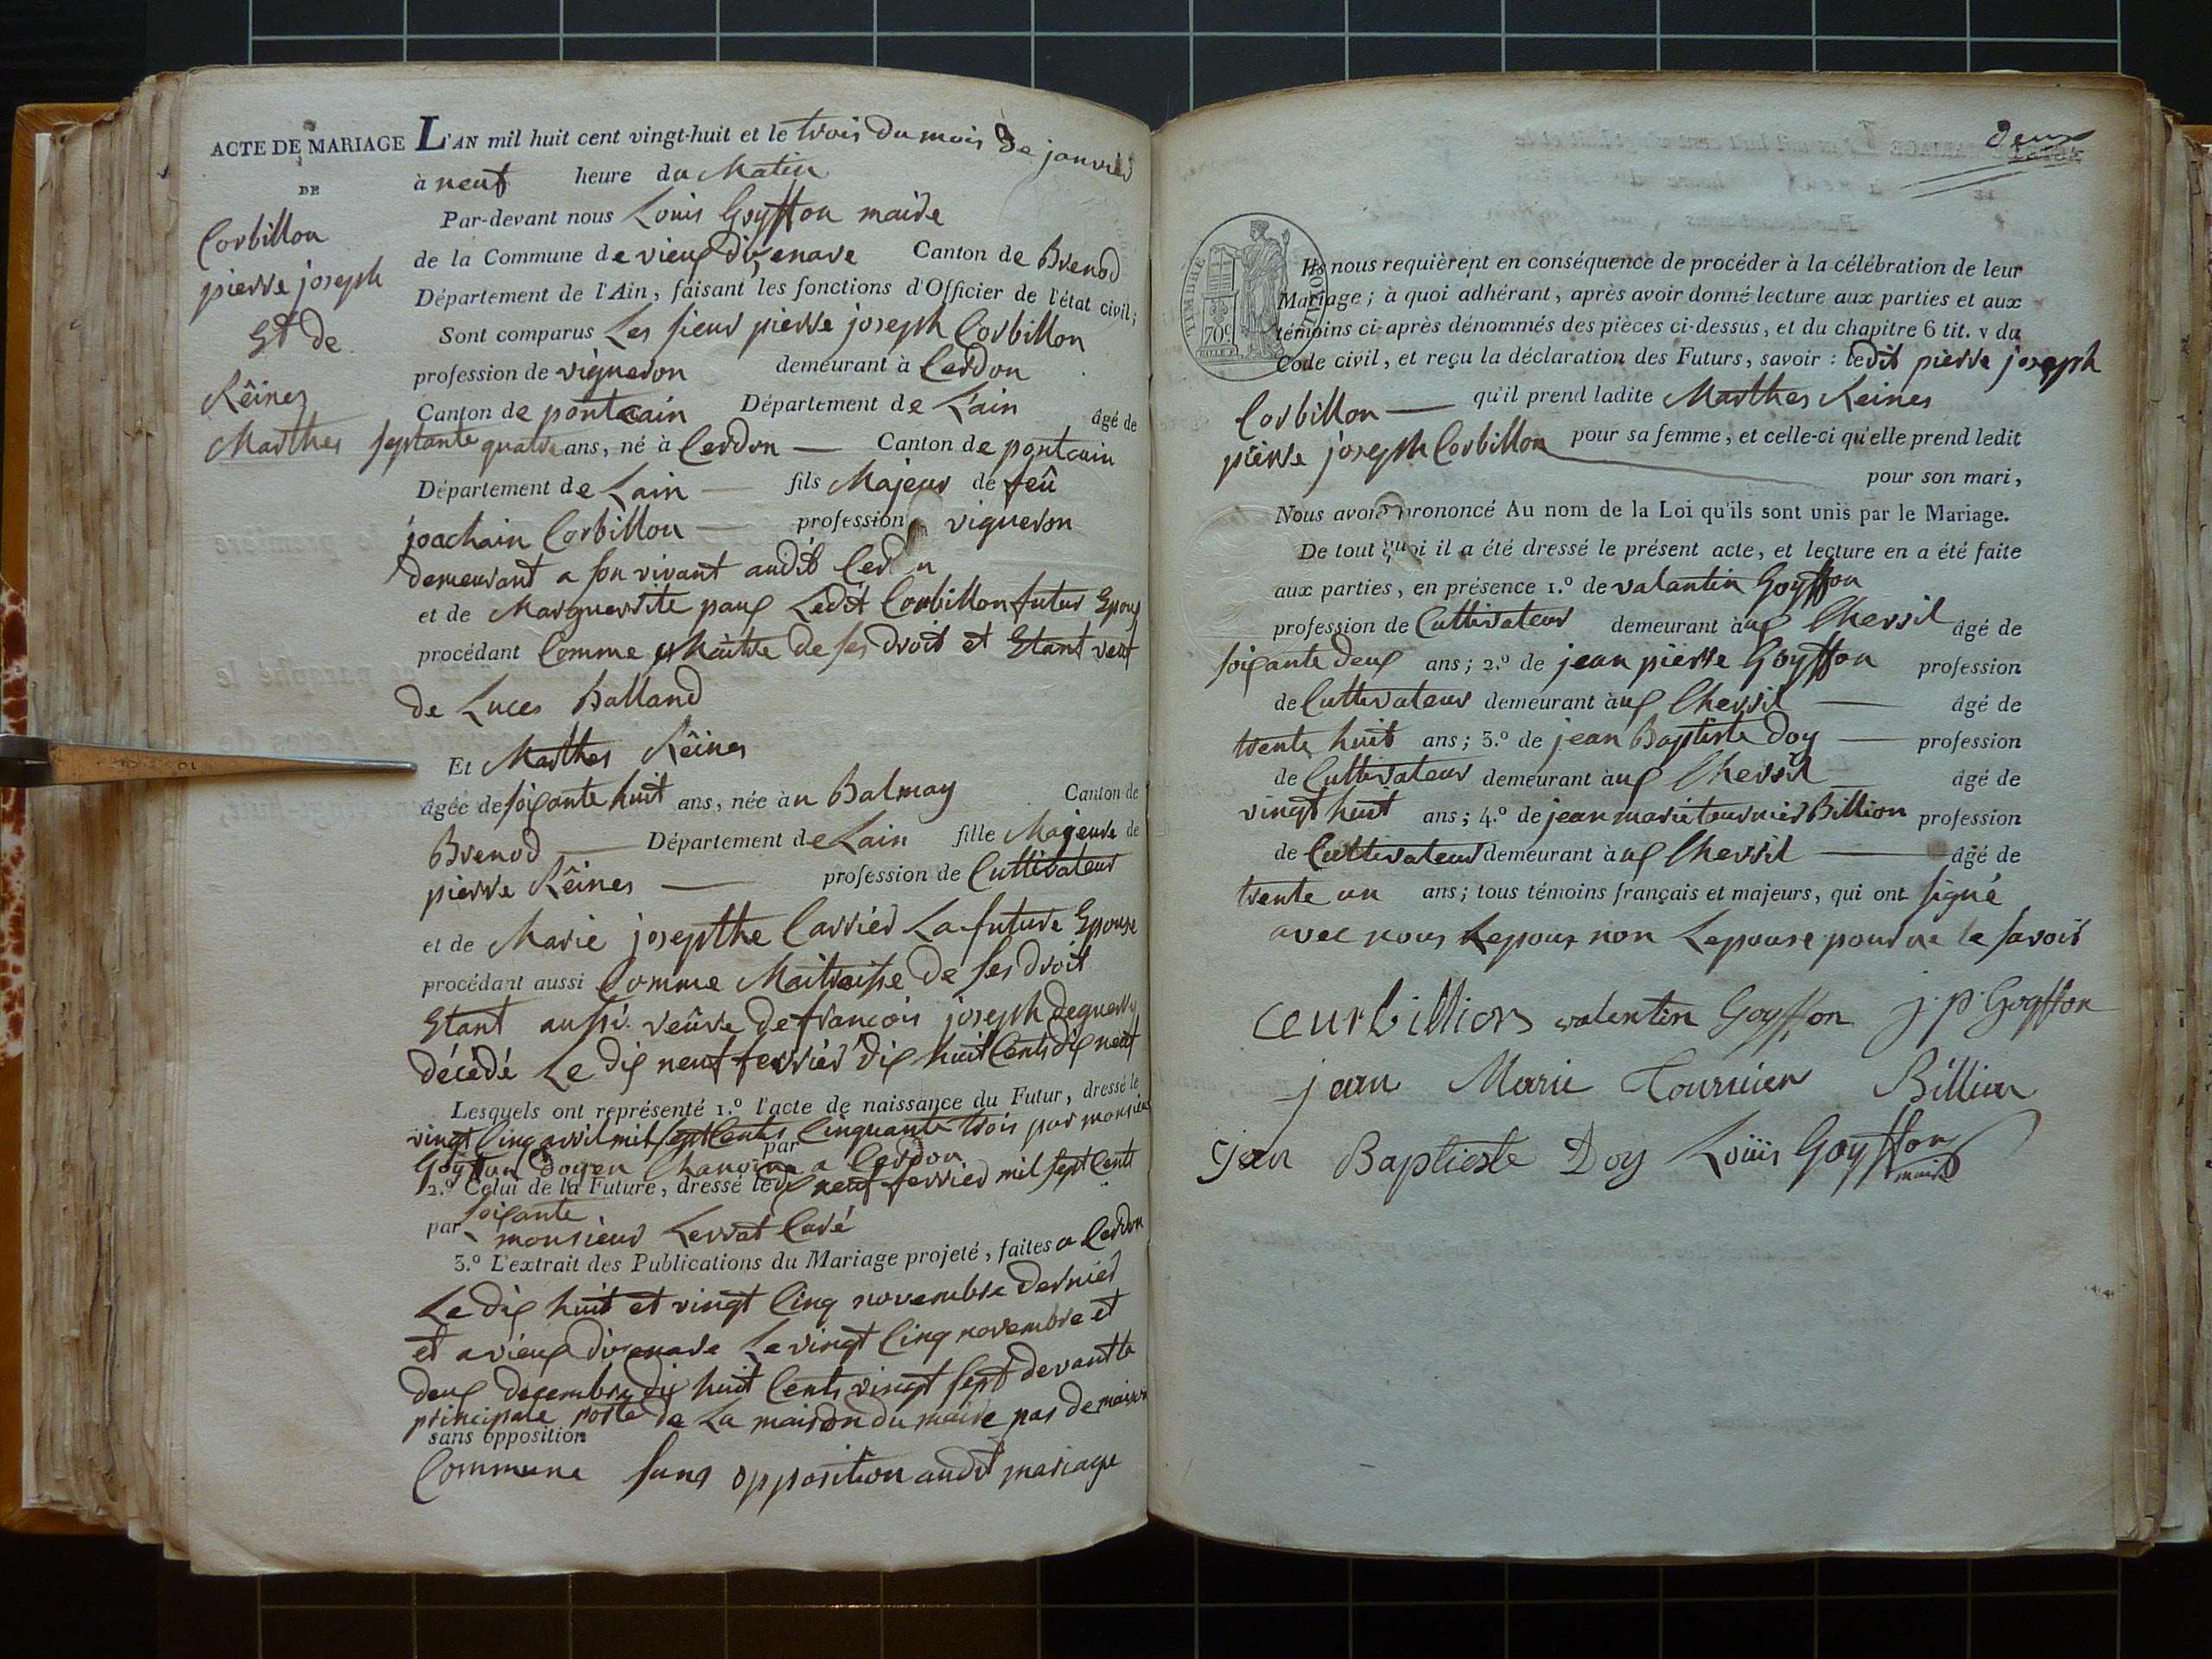 ACTE DE MARIAGE
DE
Corbillon
pierre joseph
Et de
Rêines
Marthes
L'AN mil huit cent vingt-huit et le trois du mois de janvier
à neuf heure du Matin
Par-devant nous Louis Goyffon maire
de la Commune de vieux dizenave Canton de Brenod
Département de l'Ain, faisant les fonctions d'Officier de l'état civil;
Sont comparus Les sieur pierre joseph Corbillon
profession de vigneron demeurant à Cerdon
Canton de pontcain Département de L'ain âgé de
septante quatre ans, né à Cerdon — Canton de pontcain
Département de Lain — fils Majeur de feû
joachain Corbillon — profession vigneron
demeurant a son vivant audit Cerdon
et de Marguerite paux Ledit Corbillon futur Epoux
procédant Comme Maitre de ses droit et Etant veuf
de Luces Balland
Et Marthes Rêines
âgée de soixante huit ans, née àu Balmay Canton de
Brenod — Département de Lain fille Majeure de
pierre Rêines — profession de Cultivateur
et de Marie josepthe Carrier La future Epouse
procédant aussi Comme Maitraisse de ses droit
Etant aussi veûve de françois joseph deguerry
décédé Le dix neuf fevrier dix huit Cents dix neuf
Lesquels ont représenté 1.º l'acte de naissance du Futur, dressé le
vingt Cinq avril mil sept Cents Cinquante trois par monsieur
par
Goyffon doyen Chanoine a Cerdon
2.º Celui de la Future, dressé le dix neuf fevrier mil sept Cents
soixante
par monsieur Levrat Curé
3.º L'extrait des Publications du Mariage projeté, faites a Cerdon
Le dix huit et vingt Cinq novembre dernier
et a vieux dizenave Le vingt Cinq novembre et
deux decembre dix huit Cents vingt sept devant la
principale porte de La maison du maire pas de maison
sans opposition
Commune sans opposition audit mariage
deux
TIMBRE ROYAL
70 c.
Ils nous requièrent en conséquence de procéder à la célébration de leur
Mariage; à quoi adhérant, après avoir donné lecture aux parties et aux
témoins ci-après dénommés des pièces ci-dessus, et du chapitre 6 tit. v du
Code civil, et reçu la déclaration des Futurs, savoir: ledit pierre joseph
Corbillon — qu'il prend ladite Marthes Reines
pierre joseph Corbillon pour sa femme, et celle-ci qu'elle prend ledit
pour son mari,
Nous avons prononcé Au nom de la Loi qu'ils sont unis par le Mariage.
De tout quoi il a été dressé le présent acte, et lecture en a été faite
aux parties, en présence 1.º de valantin Goyffon
profession de Cultivateur demeurant àux Chevril âgé de
soixante deux ans; 2.º de jean pierre Goyffon profession
de Cultivateur demeurant àux Chevril — âgé de
trente huit ans; 3.º de jean Baptiste doy — profession
de Cultivateur demeurant àux Chevril âgé de
vingt huit ans; 4.º de jean marie tournier Billion profession
de Cultivateur demeurant àux Chevril — âgé de
trente un ans; tous témoins français et majeurs, qui ont signé
avec nous Lepoux non Lepouse pour ne le savoir
ceurbillion valentin Goyffon j. p. Goyffon
jean Marie Tournier Billion
jean Baptieste Doy Loüis Goyffon
maire